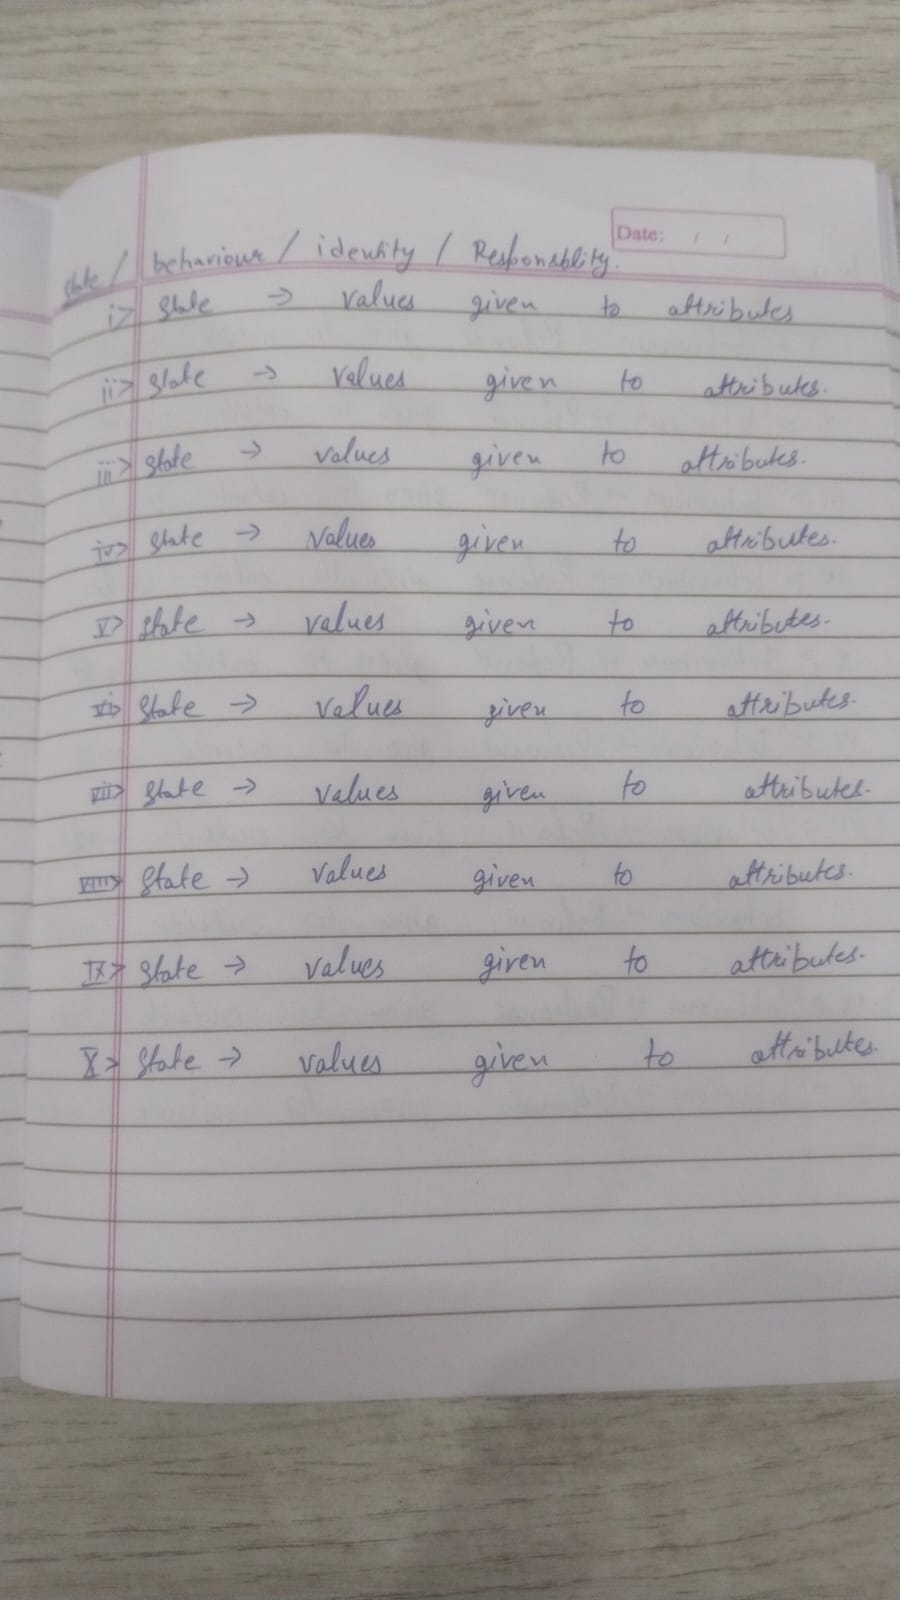 state / behaviour / identity / Responsblity.
Date: / /
i> State → values given to attributes
ii> State → values given to attributes.
iii> State → values given to attributes.
iv> State → values given to attributes.
V> State → values given to attributes.
VI> State → values given to attributes.
VII> State → values given to attributes.
VIII> State → values given to attributes.
IX> State → values given to attributes.
X> State → values given to attributes.